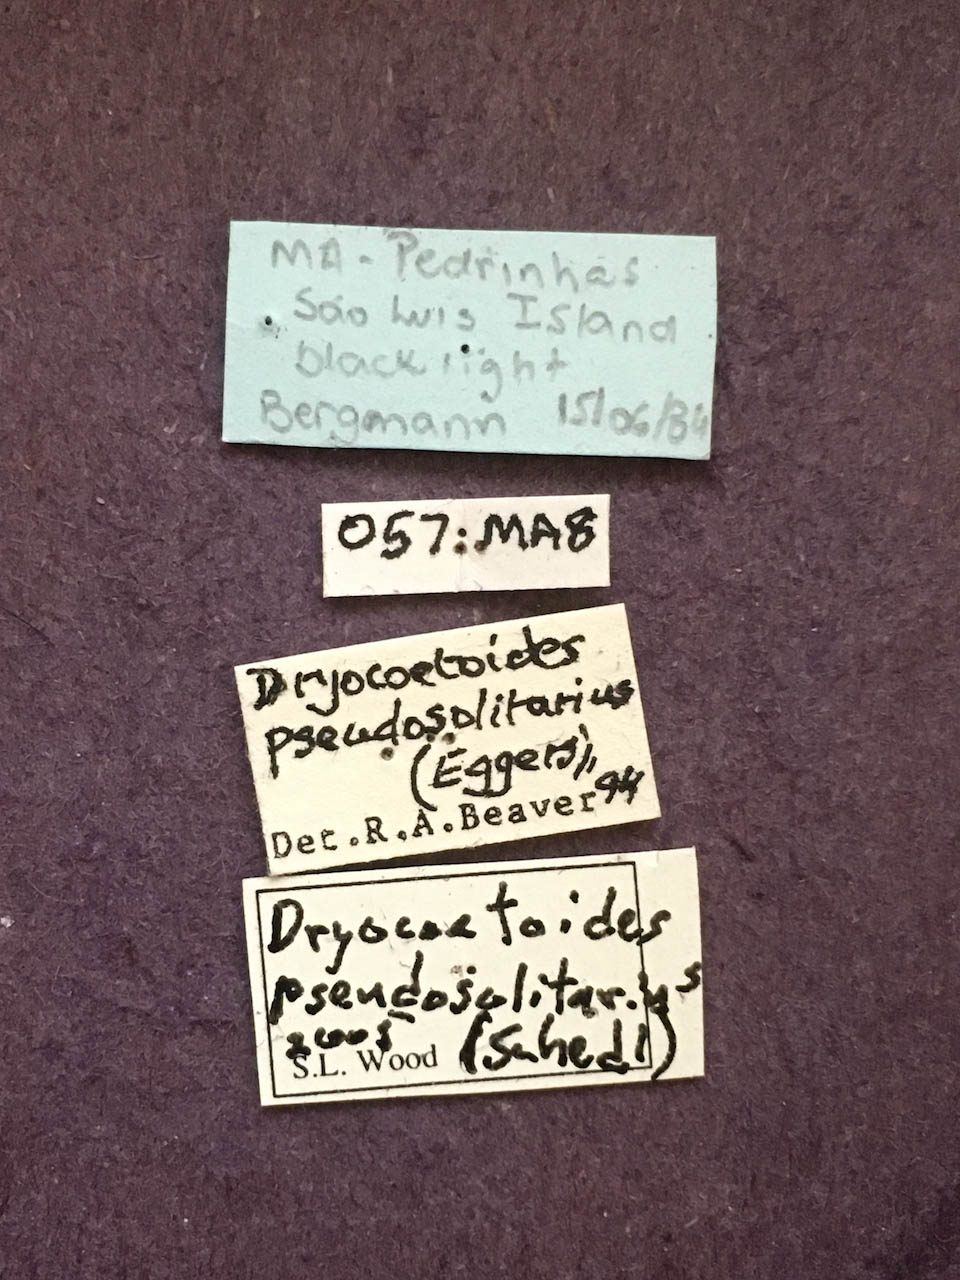 MA - Pedrinhas
São Luis Island
black light
Bergmann 15/06/84
057:MA8
Dryocoetoides
pseudosolitarius
(Eggers),
Det. R.A. Beaver 94
Dryocoetoides
pseudosolitarius
(Schedl)
S.L. Wood